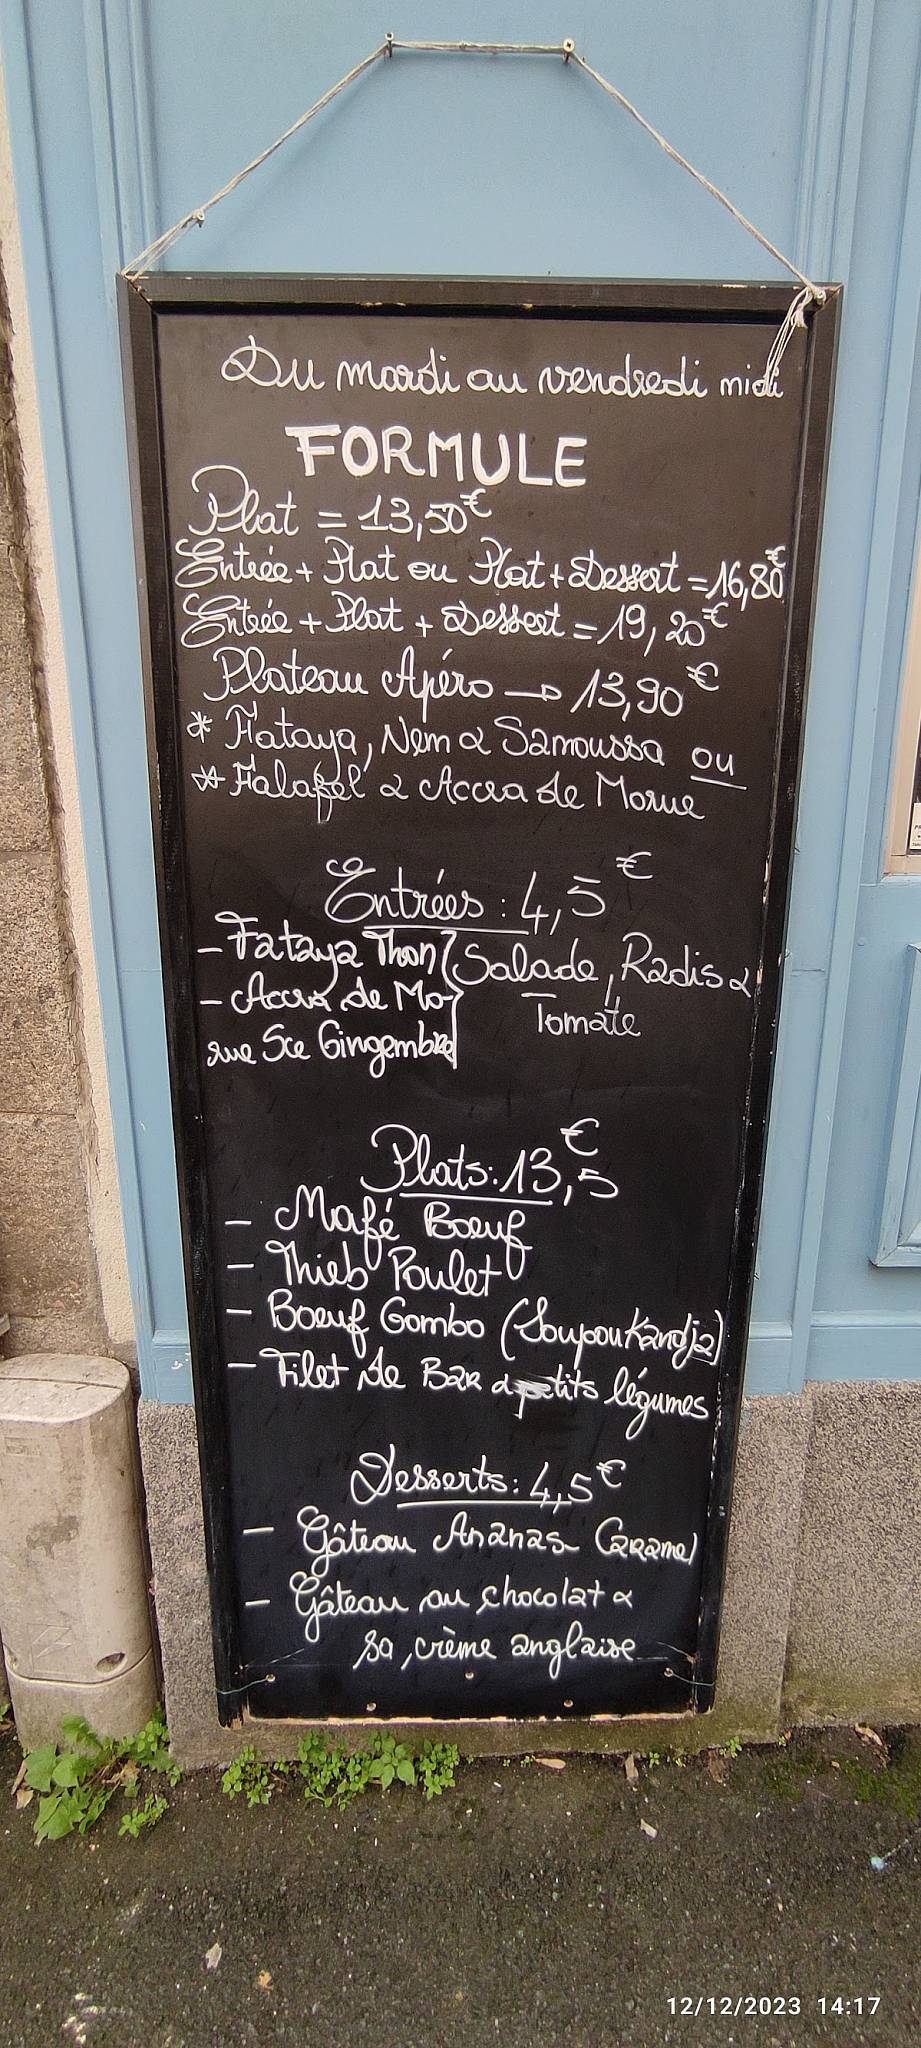 Du mardi au vendredi midi
FORMULE
Plat = 13,50€
Entrée + Plat ou Plat + Dessert = 16,80€
Entrée + Plat + Dessert = 19,20€
Plateau Apéro → 13,90€
* Fataya, Nem & Samoussa ou
* Falafel & Accra de Morue
Entrées : 4,5€
- Fataya Thon } Salade, Radis &
- Accra de Mo- Tomate
rue Sce Gingembre
Plats : 13,5€
- Mafé Boeuf
- Thieb Poulet
- Boeuf Gombo (Soupoukandja)
- Filet de Bar & petits légumes
Desserts : 4,5€
- Gâteau Ananas Caramel
- Gâteau au chocolat &
sa crème anglaise
12/12/2023 14:17